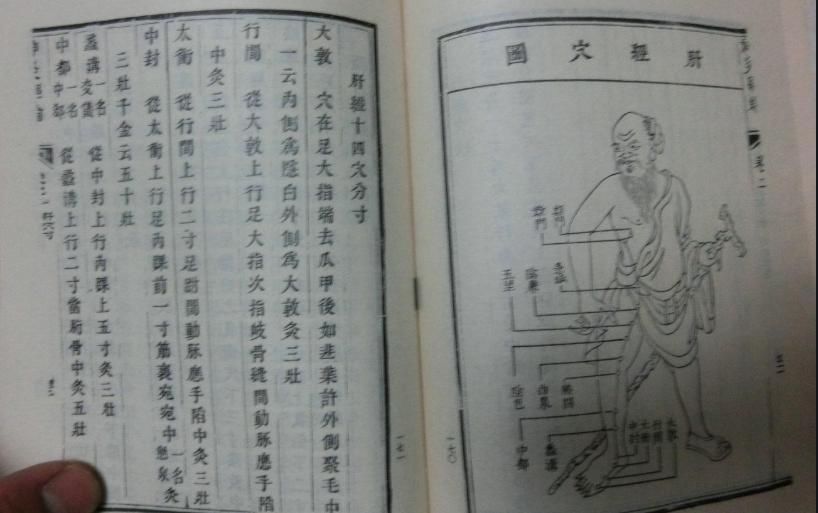 肝經穴圖
期門
章門
急脉
陰廉
五里
膝關
曲泉
陰包
蠡溝
中都
大敦
行間
太衝
中封
卷二
一七〇
肝經十四穴分寸
大敦 穴在足大指端去瓜甲後如韭葉許外側聚毛中
一云內側爲隱白外側爲大敦灸三壯
行間 從大敦上行足大指次指岐骨縫間動脉應手陷
中灸三壯
太衝 從行間上行二寸足跗間動脉應手陷中灸三壯
中封 從太衝上行足內踝前一寸筋裏宛宛中一名懸泉灸
三壯千金云五十壯
蠡溝一名交儀 從中封上行內踝上五寸灸三壯
中都一名中郄 從蠡溝上行二寸當胻骨中灸五壯
一七一